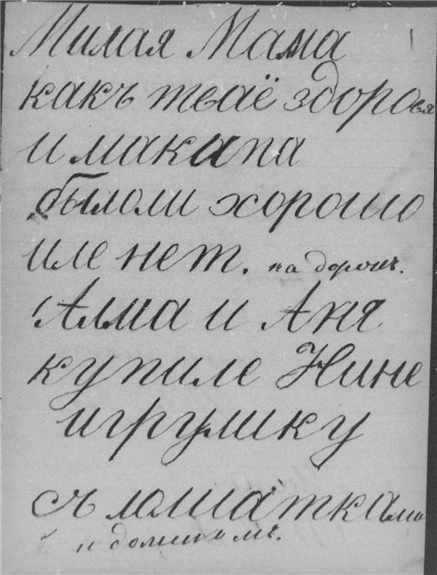 Милая Мама
какъ тваё здоровя
и мака па
былоли хорошо
иле нет. на дорош.
Алма и Аня
купиле Нине
игрушку
съ лошатками
и домикомъ.